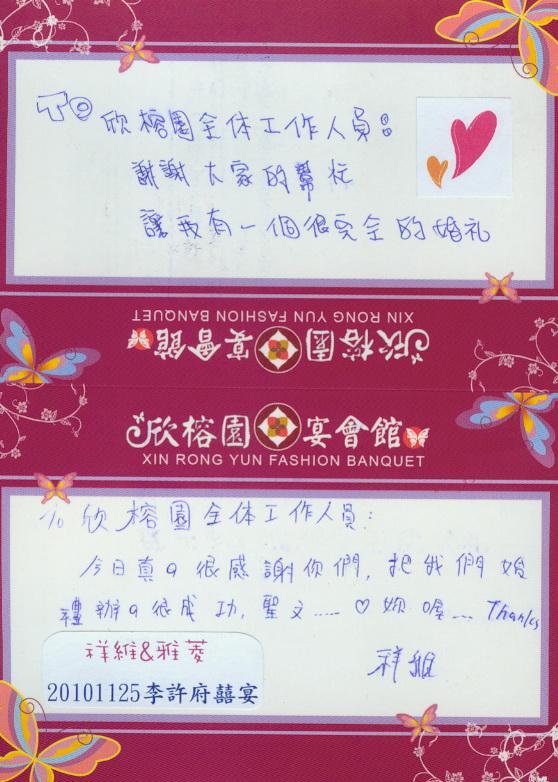 TO 欣榕園全体工作人員:
謝謝大家的幫忙
讓我有一個很完全的婚礼
XIN RONG YUN FASHION BANQUET
欣榕園 宴會館
欣榕園 宴會館
XIN RONG YUN FASHION BANQUET
To 欣榕園全体工作人員:
今日真的很感謝你們,把我們婚
禮辦的很成功,聖文.....♡妳喔... Thanks
祥維
祥維&雅菱
20101125李許府囍宴